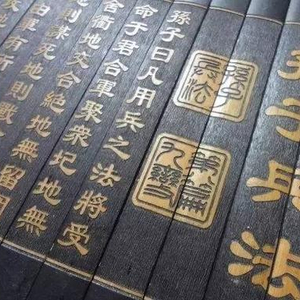 孫子兵法
孫子兵法
孫子曰凡用兵之法將受
命于君合軍聚衆圮地無
舍衢地交合絶地無留
地則謀死地則戰
由軍有所